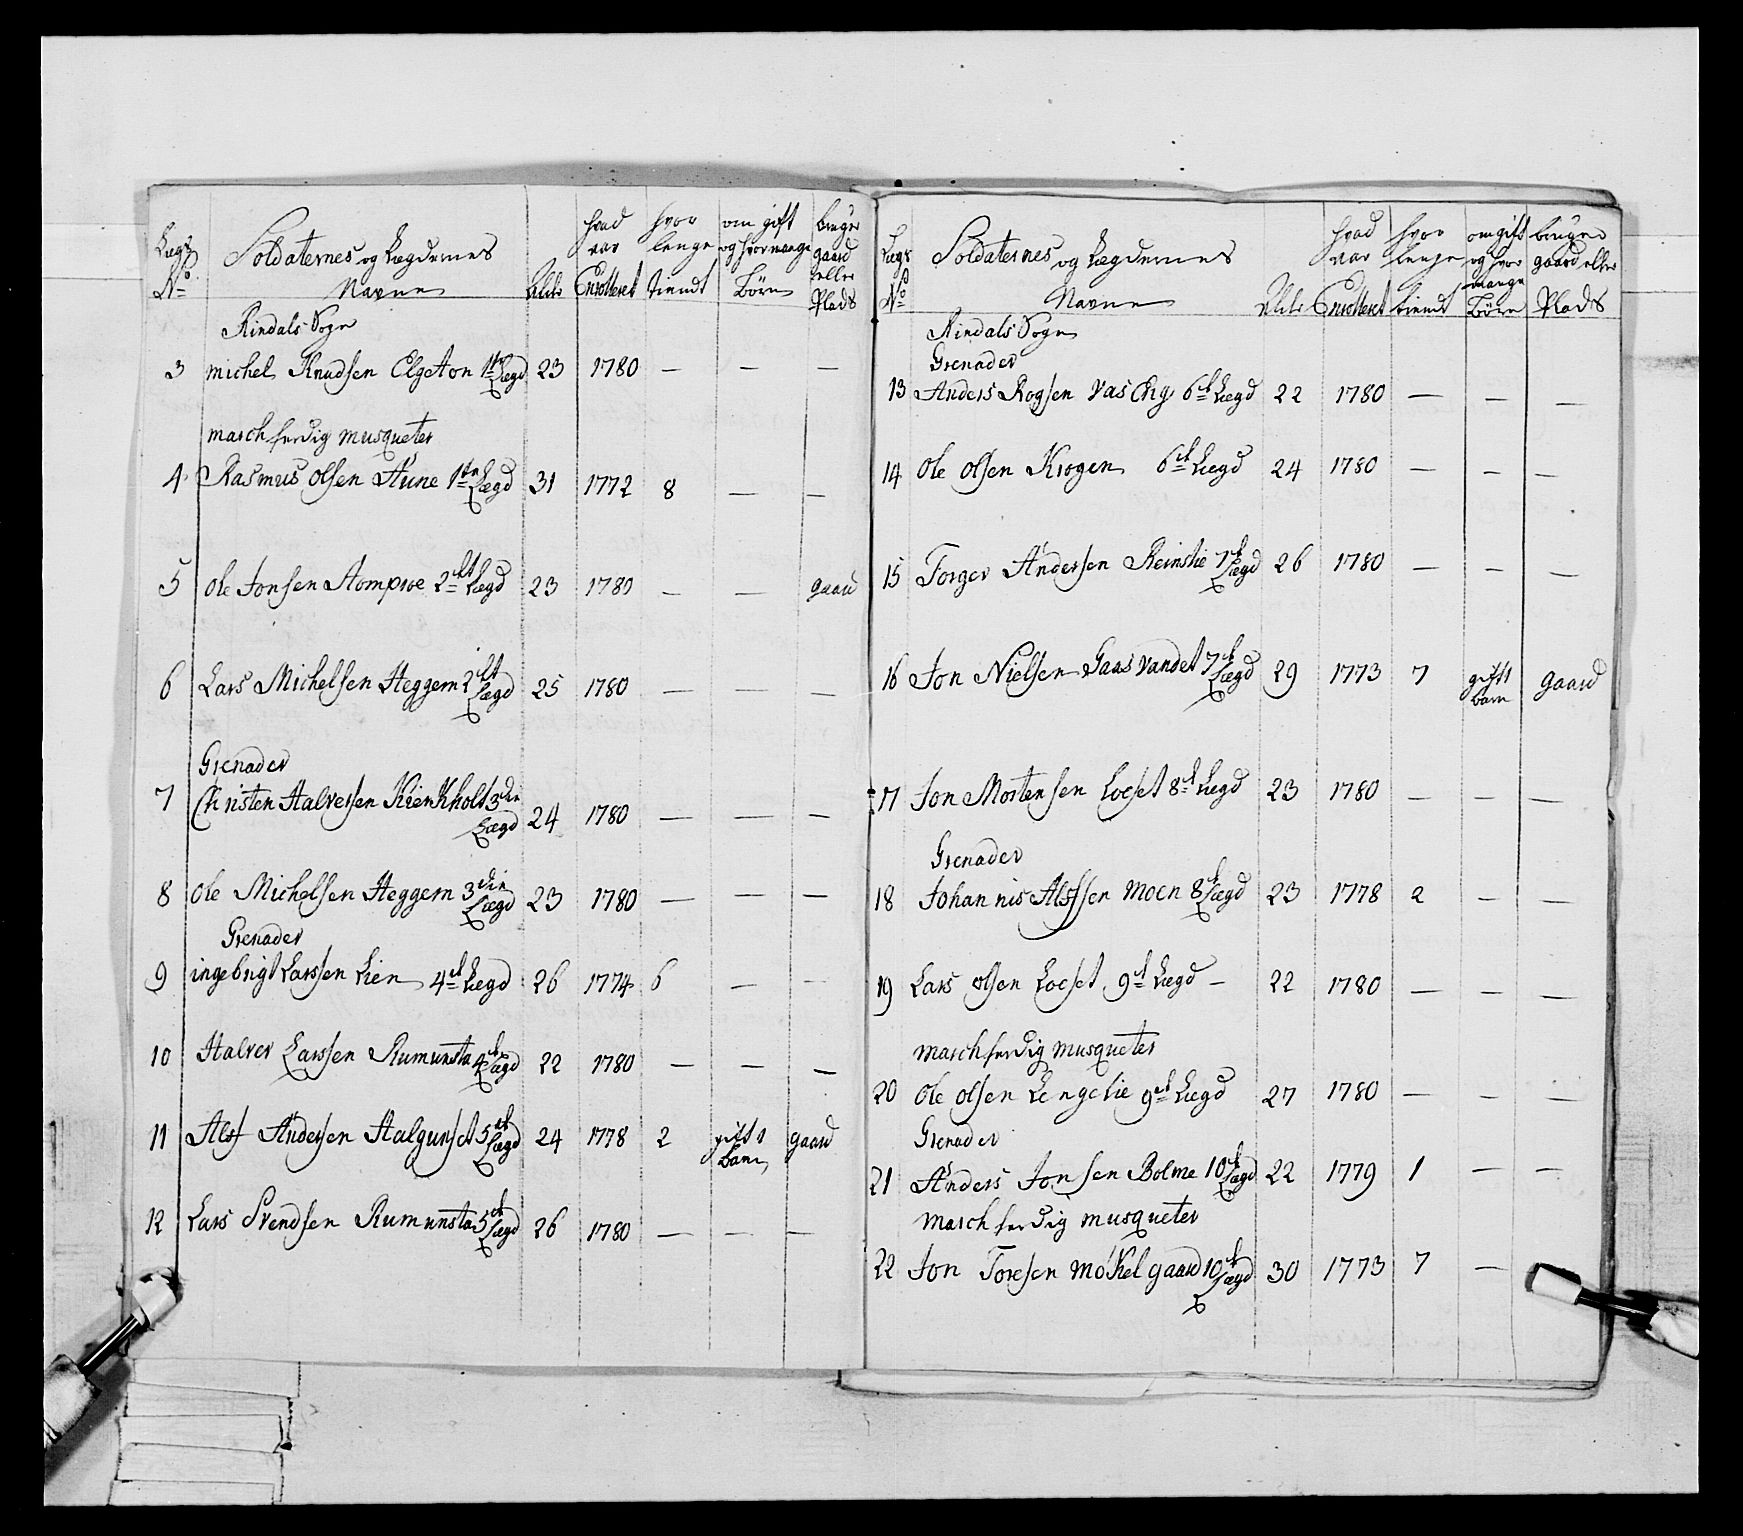 Lægs No
Soldaternes og Lægdernes Navne
Alder
hvad aar Enrolleret
hvor lenge tient
om gift og hvor mange Børn
bruger gaard eller Plads
Rindals Sogn
3 michel Knudsen Elgeton 1te Lægd 23 1780 — — —
march ferdig musqueter
4 Rasmus Olsen Aune 1te Lægd 31 1772 8 — —
5 Ole Jonsen 2det Lægd 23 1780 — — gaard
6 Lars Michelsen Heggem 2det Lægd 25 1780 — — —
Grenader
7 Christen Halversen 3die Lægd 24 1780 — — —
8 Ole Michelsen Heggem 3die Lægd 23 1780 — — —
Grenader
9 ingebrigt Larssen Lien 4de Lægd 26 1774 6 — —
10 Halver Larssen Rumunsta 4de Lægd 22 1780 — — —
11 Alf Andersen Halgunset 5te Lægd 24 1778 2 gift 1 barn gaard
12 Lars Svendsen Rumunsta 5te Lægd 26 1780 — — —
Lægs No
Soldaternes og Lægdernes Navne
Alder
hvad aar Enrolleret
hvor lenge tient
om gift og hvor mange Børn
bruger gaard eller Plads
Rindals Sogn
Grenader
13 Anders 6te Lægd 22 1780 — — —
14 Ole Olsen Krogen 6te Lægd 24 1780 — — —
15 Torger Andersen Reinslie 7de Lægd 26 1780 — — —
16 Jon Nielsen Gaasvandet 7de Lægd 29 1773 7 gift 1 barn gaard
17 Jon Mortensen Loeset 8de Lægd 23 1780 — — —
Grenader
18 Johannis Alfsen moen 8de Lægd 23 1778 2 — —
19 Lars Olsen Loeset 9de Lægd — 22 1780 — — —
march ferdig musqueter
20 Ole Olsen Lengelie 9de Lægd 27 1780 — — —
Grenader
21 Anders Jonsen Bolme 10de Lægd 22 1779 1 — —
march ferdig musqueter
22 Jon Toresen møkelgaard 10de Lægd 30 1773 7 —